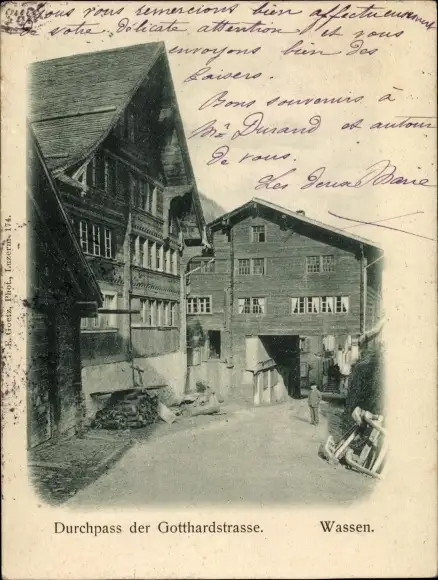 Nous vous remercions bien affectueusement
votre délicate attention et vous
envoyons bien des
baisers.
Bons souvenirs à
Mme Durand et autour
de vous.
Les deux Marie
E. Goetz, Phot., Luzern. 174.
Durchpass der Gotthardstrasse. Wassen.